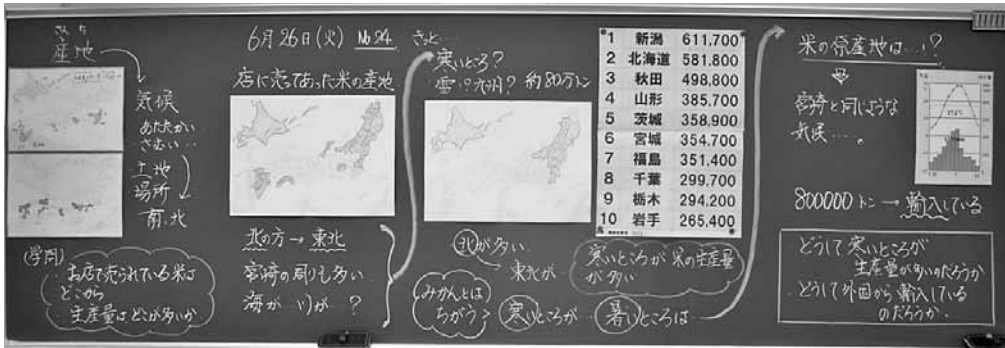 さんち
産地
気候
あたたかい
さむい‥
土地
場所
南、北
(学問)
お店で売られている米は
どこから
生産量はどこが多いか
6月26日(火) No24
店に売ってあった米の産地
北の方→東北
宮崎の周りも多い
海が
が ?
きっと…
寒いところ?
雪!?九州? 約80万トン
北が多い
東北が
みかんとは
ちがう>
寒いところが
暑いところは
1 新潟 611,700
2 北海道 581,800
3 秋田 498,800
4 山形 385,700
5 茨城 358,900
6 宮城 354,700
7 福島 351,400
8 千葉 299,700
9 栃木 294,200
10 岩手 265,400
寒いところが米の生産量
が多い
米の原産地は…!?
宮崎と同じような
気候….
800000トン→輸入している
どうして寒いところが
生産量が多いのだろうか
どうして外国から輸入している
のだろうか.